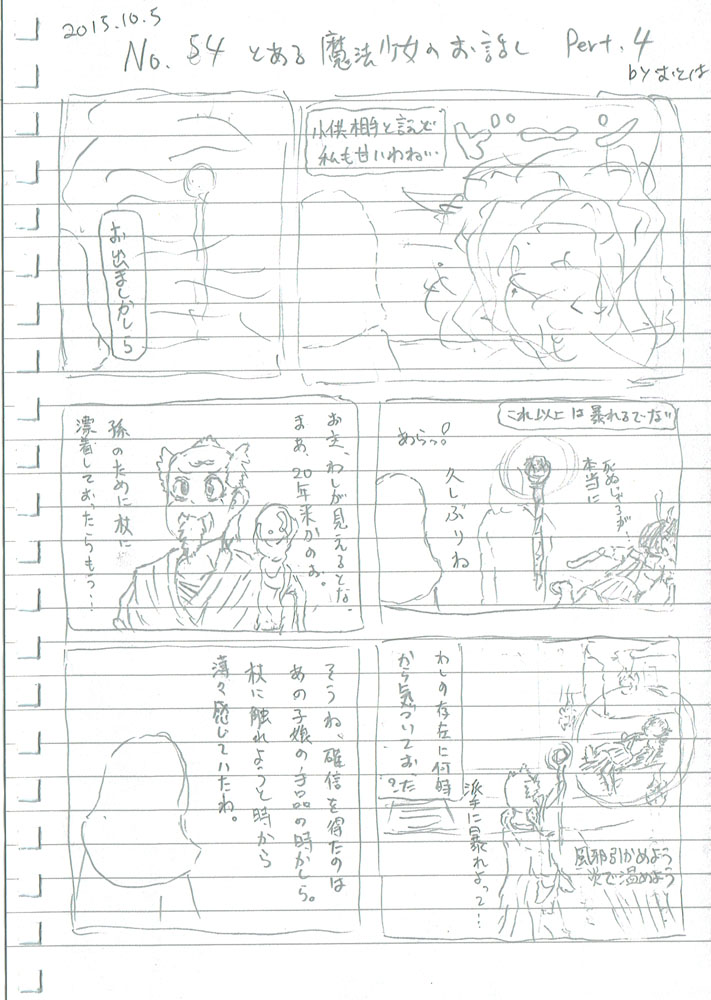 2015.10.5
No. 54 とある魔法少女のお話し Part. 4
by むとは
小供相手と言えど
私も甘いわね…
お出ましかしら
これ以上は暴れるでない
死ぬじゃろが…
本当に
あらっ!
久しぶりね
お主、わしが見えるとな。
まあ、20年来かのお。
孫のために杖に
漂着しておったらもう…
わしの存在に何時
から気づいておった?
派手に暴れよって…
風邪引かぬよう
炎で温めよう
そうね、確信を得たのは
あの子娘の手品の時かしら。
杖に触れようと時から
薄々感じていたわ。